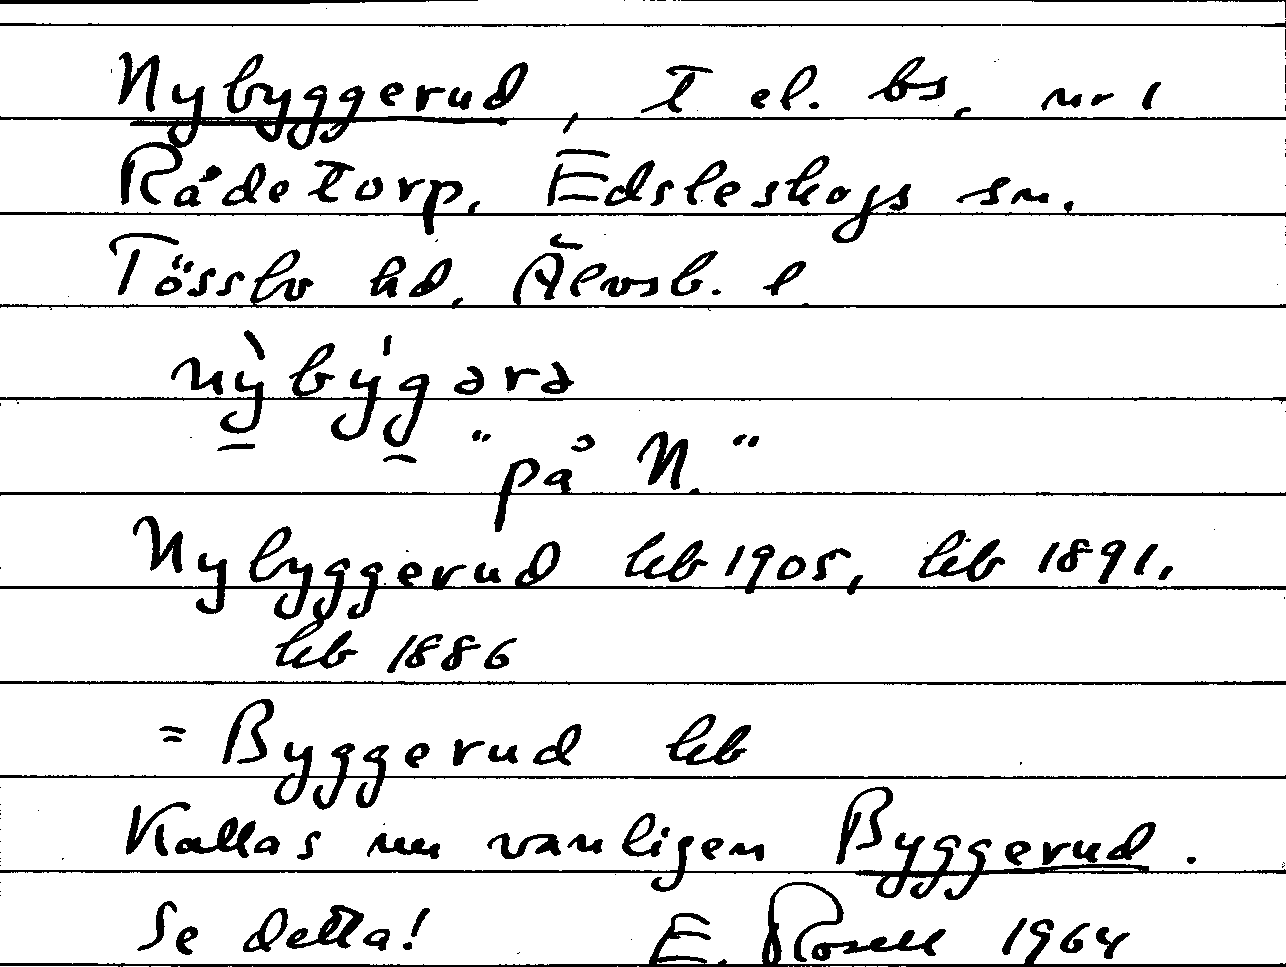 Nybyggerud, t el. bs, nr 1
Rådetorp, Edsleskogs sn.
Tössbo hd, Älvsb. l
nỳbýgərə
"på N."
Nybyggerud lkb 1905, lkb 1891,
lkb 1886
= Byggerud lkb
Kallas nu vanligen Byggerud.
Se detta! E. Rosell 1964